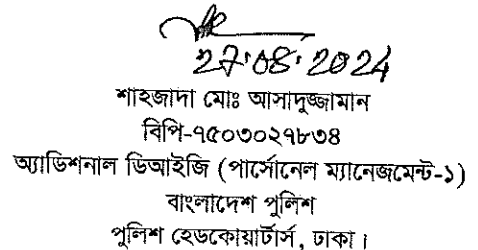 27.08.2024
শাহজাদা মোঃ আসাদুজ্জামান
বিপি-৭৫০৩০২৭৮৩৪
অ্যাডিশনাল ডিআইজি (পার্সোনেল ম্যানেজমেন্ট-১)
বাংলাদেশ পুলিশ
পুলিশ হেডকোয়ার্টার্স, ঢাকা।